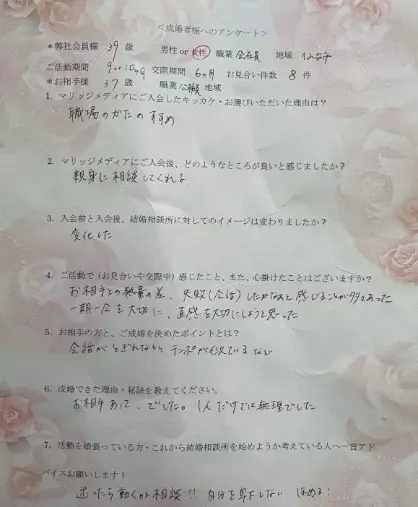 ＜成婚者様へのアンケート＞
*弊社会員様 39歳 男性or女性 職業 会社員 地域 仙台市
ご活動期間 交際期間 6ヶ月 お見合い件数 8件
*お相手様 37歳 職業 公務員 地域
1. マリッジメディアにご入会したキッカケ・お選びいただいた理由は？
職場のかたのすすめ
2. マリッジメディアにご入会後、どのようなところが良いと感じましたか？
親身に相談してくれる
3. 入会前と入会後、結婚相談所に対してのイメージは変わりましたか？
変化した
4. ご活動で（お見合いや交際中）感じたこと、また、心掛けたことはございますか？
お相手との熱量の差、失敗（会話）したかなあと感じることが多々あった
一期一会を大切に、直感を大切にしようと思った
5. お相手の方と、ご成婚を決めたポイントとは？
会話がとぎれない テンポが似ている など
6. 成婚できた理由・秘訣を教えてください。
お相手あって、でした。1人だけでは無理でした
7. 活動を頑張っている方・これから結婚相談所を始めようか考えている人へ一言アド
バイスお願いします！
迷ったら動くか相談!! 自分を卑下しない ほめる!